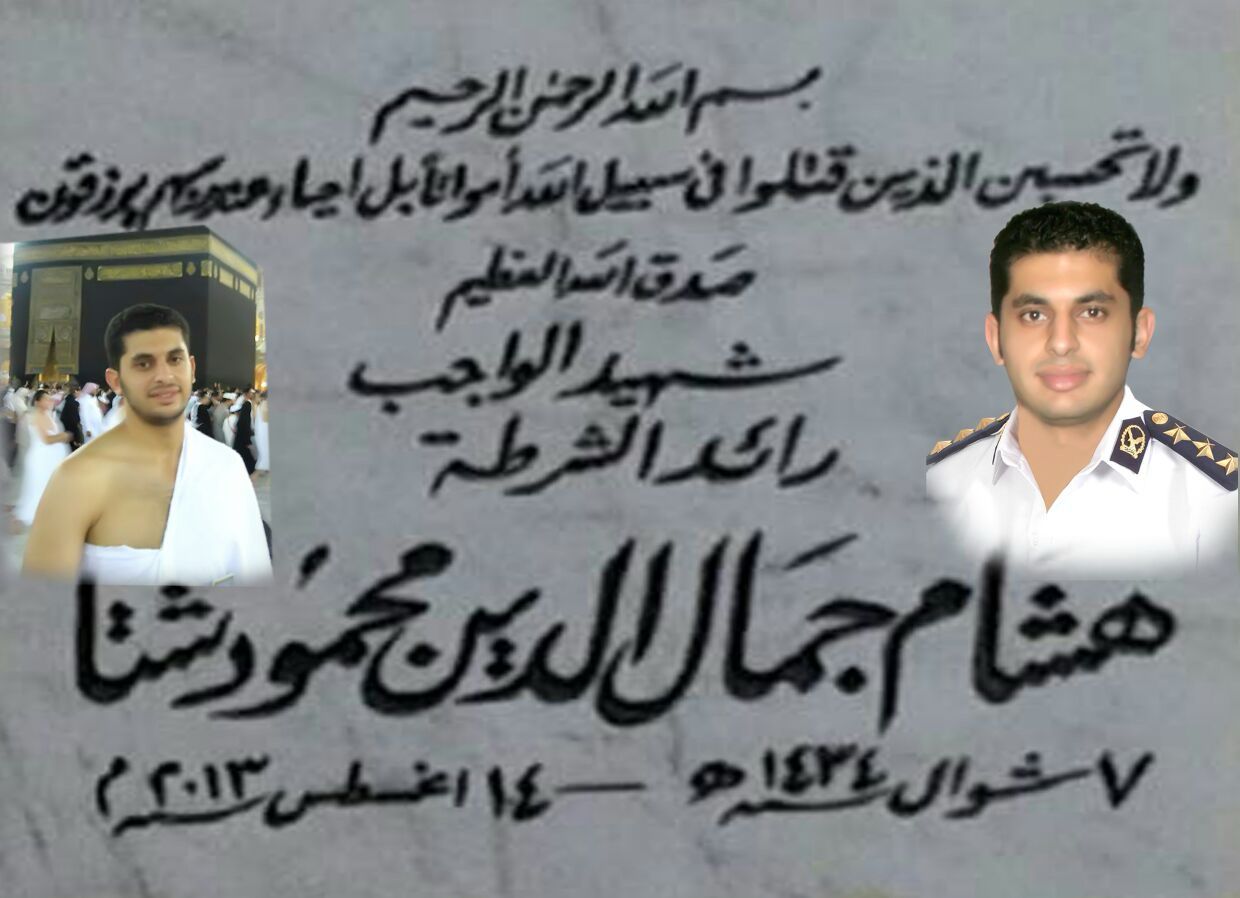 بسم الله الرحمن الرحيم
ولا تحسبن الذين قتلوا في سبيل الله أمواتا بل احياء عند ربهم يرزقون
صدق الله العظيم
شهيد الواجب
رائد الشرطة
هشام جمال الدين محمود شتا
٧ شوال سنه ١٤٣٤ هـ — ١٤ اغسطس سنه ٢٠١٣ م